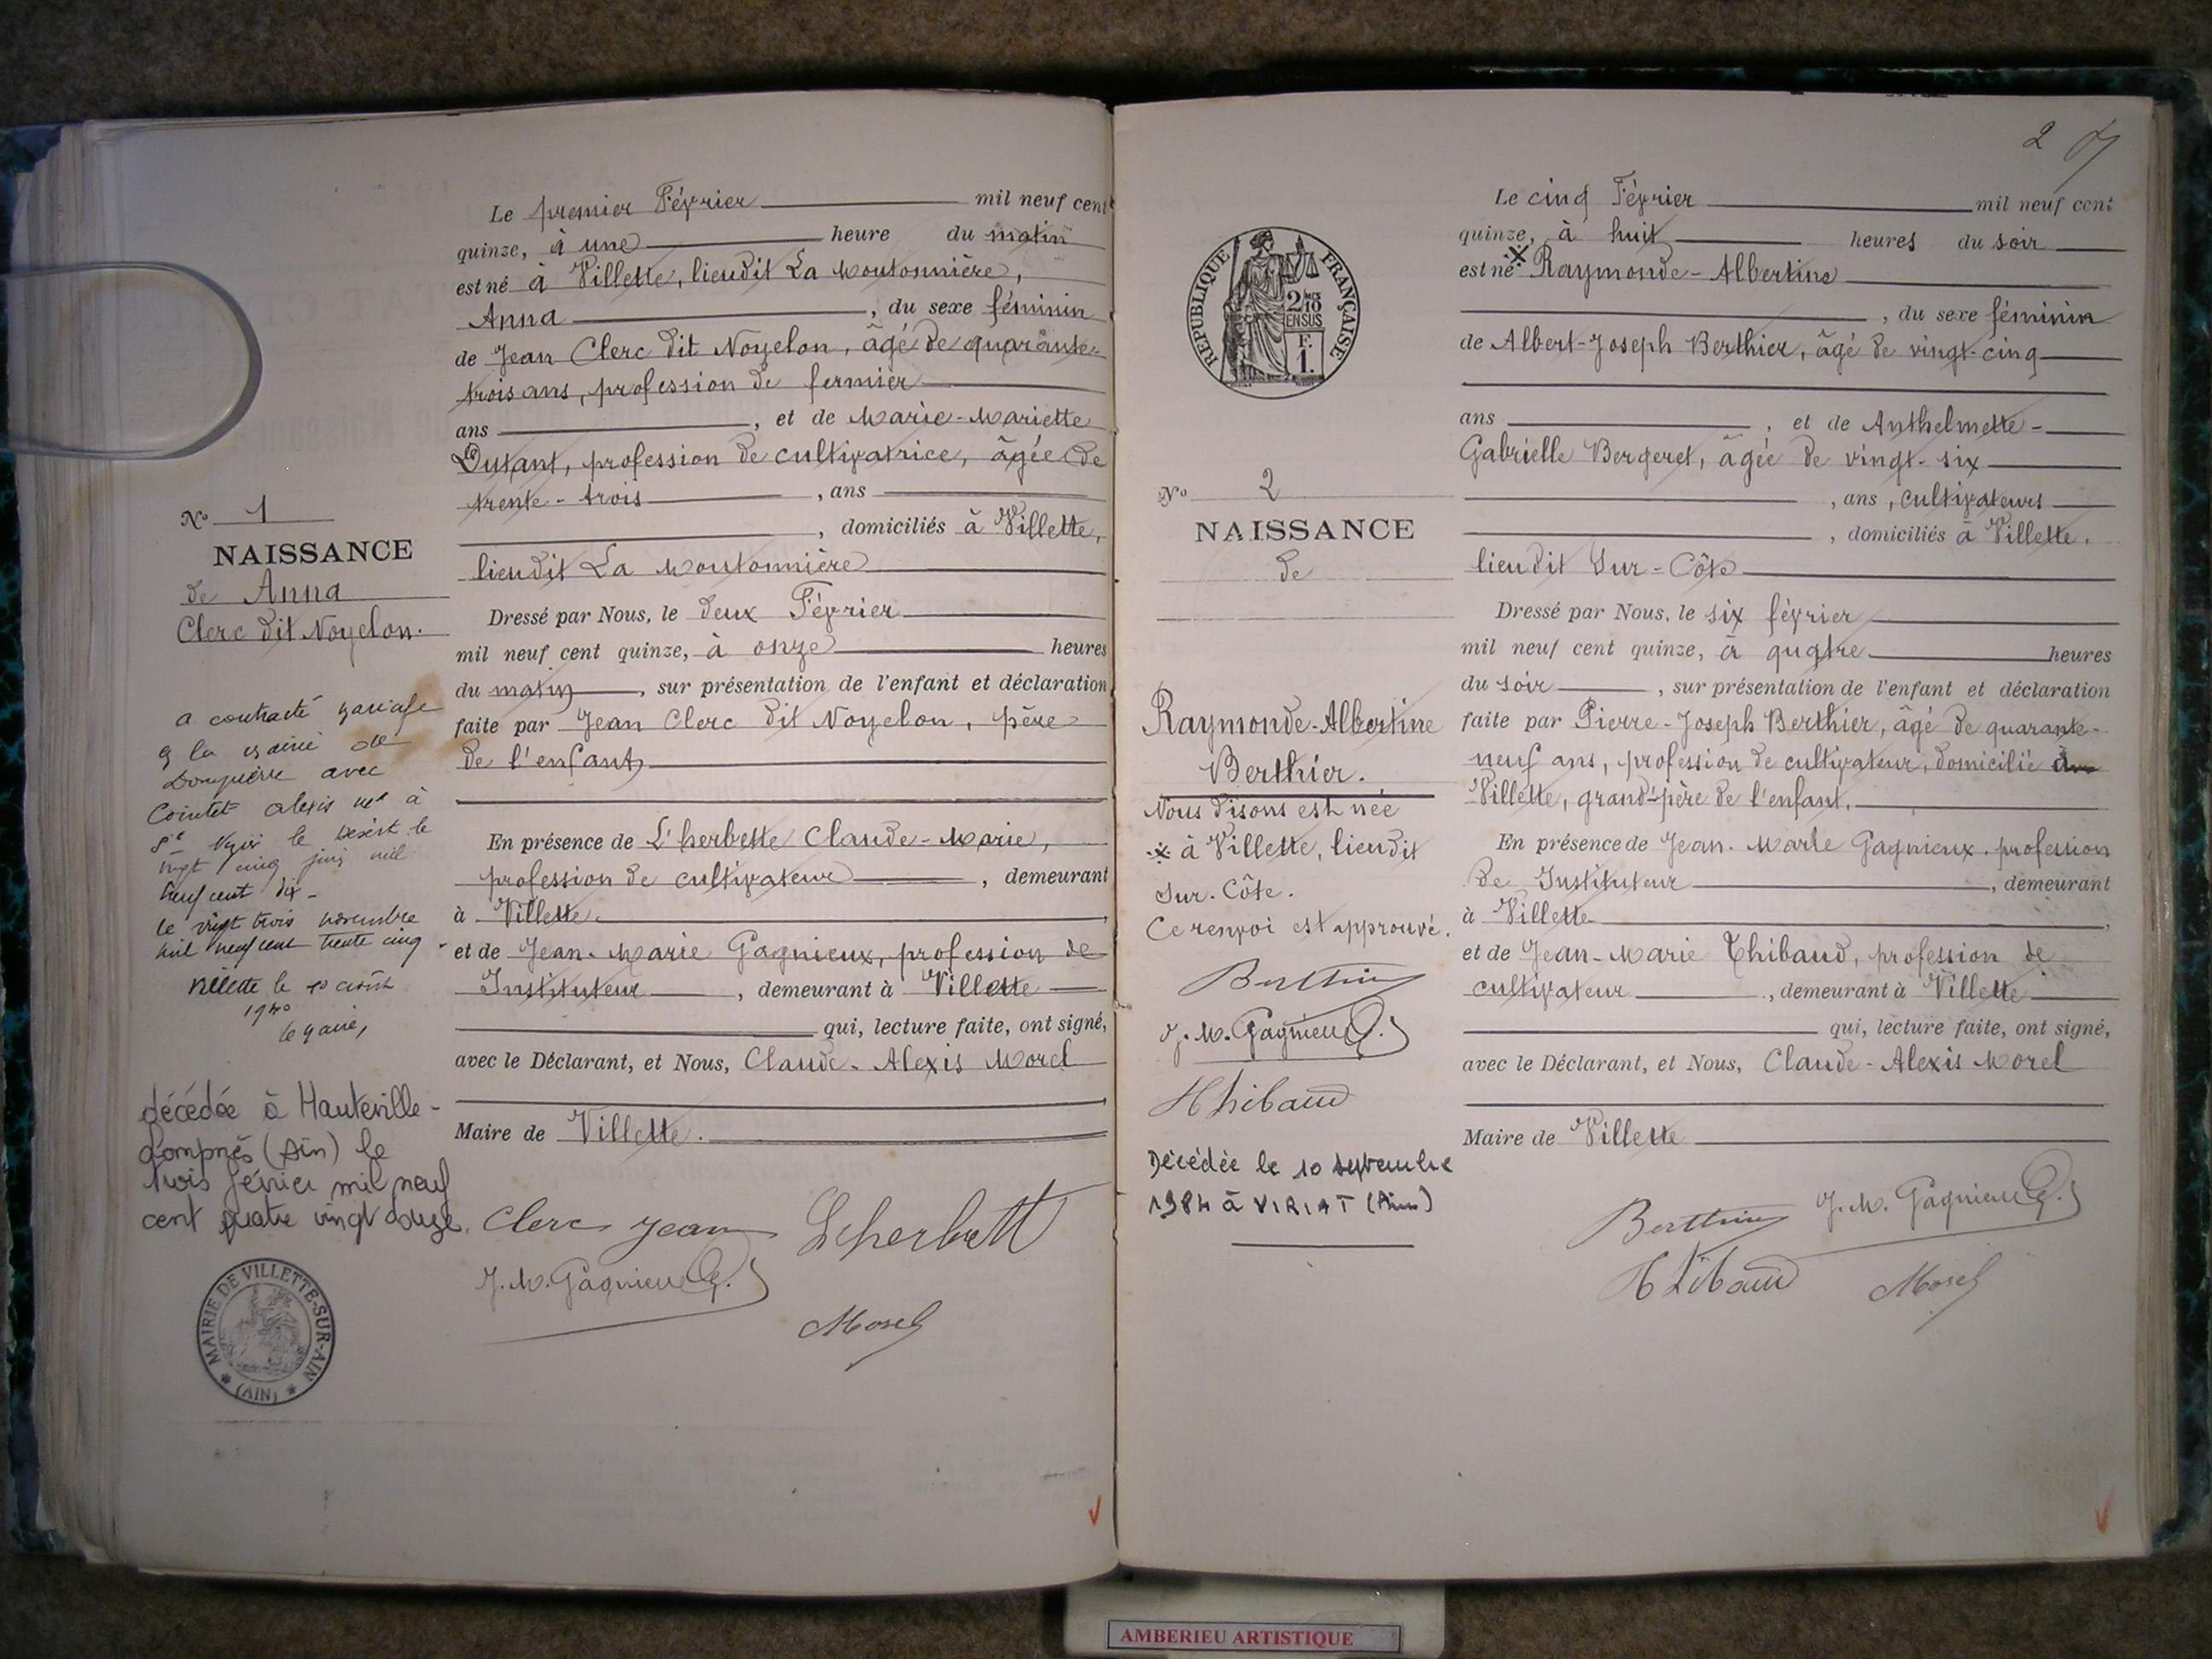 N° 1
NAISSANCE
de Anna
Clerc dit Noyelon.
a contracté mariage
à la mairie de
avec
Cointet alexis né à
le
vingt cinq juin mil
neuf cent dix -
le vingt trois novembre
mil neuf cent trente cinq -
Villette le 10 août
1940
le maire,
décédée à Hauteville-
Lompnès (Ain) le
trois février mil neuf
cent quatre vingt douze.
MAIRIE DE VILLETTE-SUR-AIN
* (AIN) *
Le premier Février mil neuf cent
quinze, à une heure du matin
est né à Villette, lieudit La Moutonnière,
Anna, du sexe féminin
de Jean Clerc dit Noyelon, âgé de quarante-
trois ans, profession de fermier
ans, et de Marie-Mariette
Dutant, profession de cultivatrice, âgée de
trente-trois, ans
, domiciliés à Villette,
lieudit La Moutonnière
Dressé par Nous, le deux Février
mil neuf cent quinze, à onze heures
du matin, sur présentation de l'enfant et déclaration
faite par Jean Clerc dit Noyelon, père
de l'enfant
En présence de L'herbette Claude-Marie,
profession de cultivateur, demeurant
à Villette.
et de Jean-Marie Gagnieux, profession de
Instituteur, demeurant à Villette
qui, lecture faite, ont signé,
avec le Déclarant, et Nous, Claude-Alexis Morel
Maire de Villette.
Clerc Jean Lherbett
J. M. Gagnieux.
Morel
2
REPUBLIQUE FRANÇAISE
2/10
EN SUS
F.
1.
N° 2
NAISSANCE
de
Raymonde-Albertine
Berthier.
Nous disons est née
※ à Villette, lieudit
Sur-Côte.
Ce renvoi est approuvé.
Berthier
J. M. Gagnieux.
Thibaud
Décédée le 10 septembre
1984 à VIRIAT (Ain)
Le cinq Février mil neuf cent
quinze, à huit heures du soir
est né ※ Raymonde-Albertine
, du sexe féminin
de Albert-Joseph Berthier, âgé de vingt-cinq
ans, et de Anthelmette-
Gabrielle Bergeret, âgée de vingt-six
, ans, cultivateurs
, domiciliés à Villette,
lieudit Sur-Côte
Dressé par Nous, le six février
mil neuf cent quinze, à quatre heures
du soir, sur présentation de l'enfant et déclaration
faite par Pierre-Joseph Berthier, âgé de quarante-
neuf ans, profession de cultivateur, domicilié à
Villette, grand-père de l'enfant.
En présence de Jean-Marie Gagnieux, profession
de Instituteur, demeurant
à Villette
et de Jean-Marie Thibaud, profession de
cultivateur, demeurant à Villette
qui, lecture faite, ont signé,
avec le Déclarant, et Nous, Claude-Alexis Morel
Maire de Villette
Berthier J. M. Gagnieux.
Thibaud Morel
AMBERIEU ARTISTIQUE